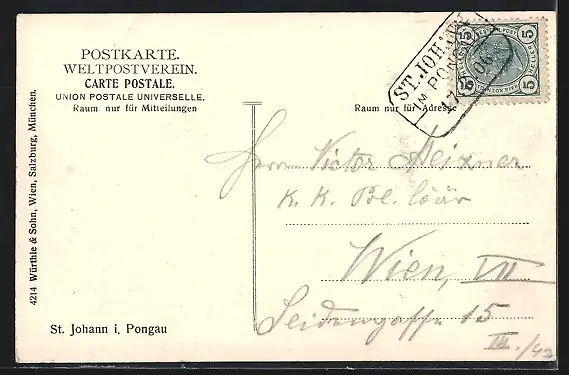 POSTKARTE.
WELTPOSTVEREIN.
CARTE POSTALE.
UNION POSTALE UNIVERSELLE.
Raum nur für Mitteilungen
Raum nur für Adresse
ST. JOHANN
IM PON
17 06
5 5
5 5
Herrn Victor Meixner
K. K. Pol.
Wien, VII
Seidengasse 15
III./42
St. Johann i. Pongau
4214 Würthle & Sohn, Wien, Salzburg, München.